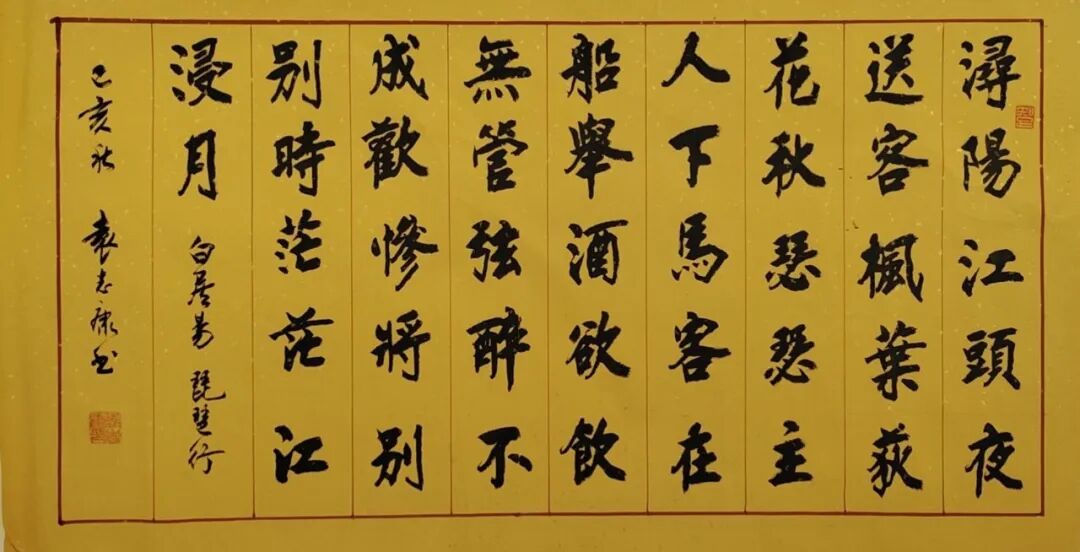 潯陽江頭夜
送客楓葉荻
花秋瑟瑟主
人下馬客在
船舉酒欲飲
無管弦醉不
成歡慘將別
別時茫茫江
浸月
白居易 琵琶行
己亥秋 袁志康书